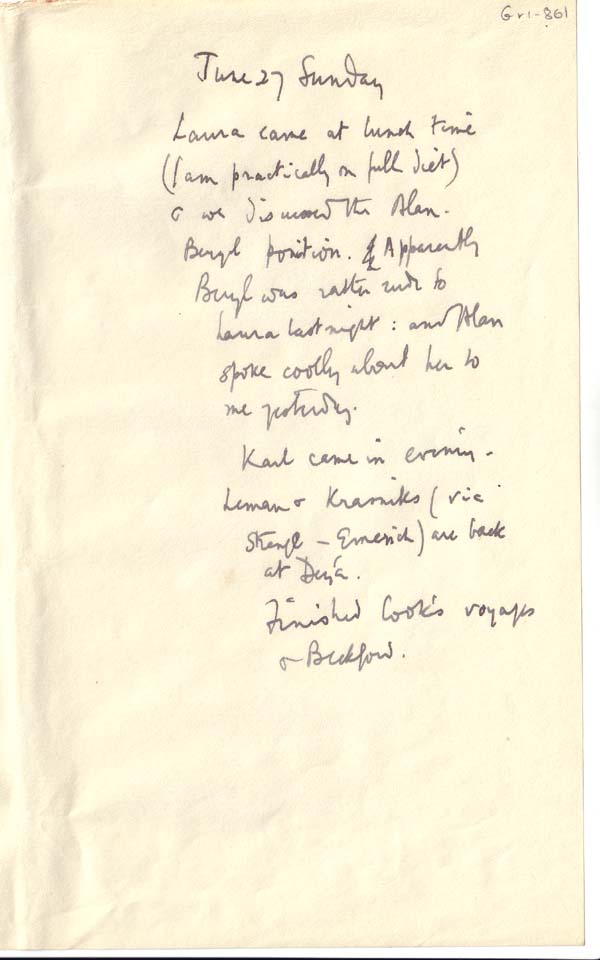 Gr1-861
June 27 Sunday
Laura came at lunch time
(I am practically on full diet)
& we discussed the Alan-
Beryl position. Apparently
Beryl was rather rude to
Laura last night: and Alan
spoke coolly about her to
me yesterday.
Karl came in evening.
Leman & Krasniks (via
Stengl - Emerich) are back
at Deyá.
Finished Cook's voyages
& Beckford.